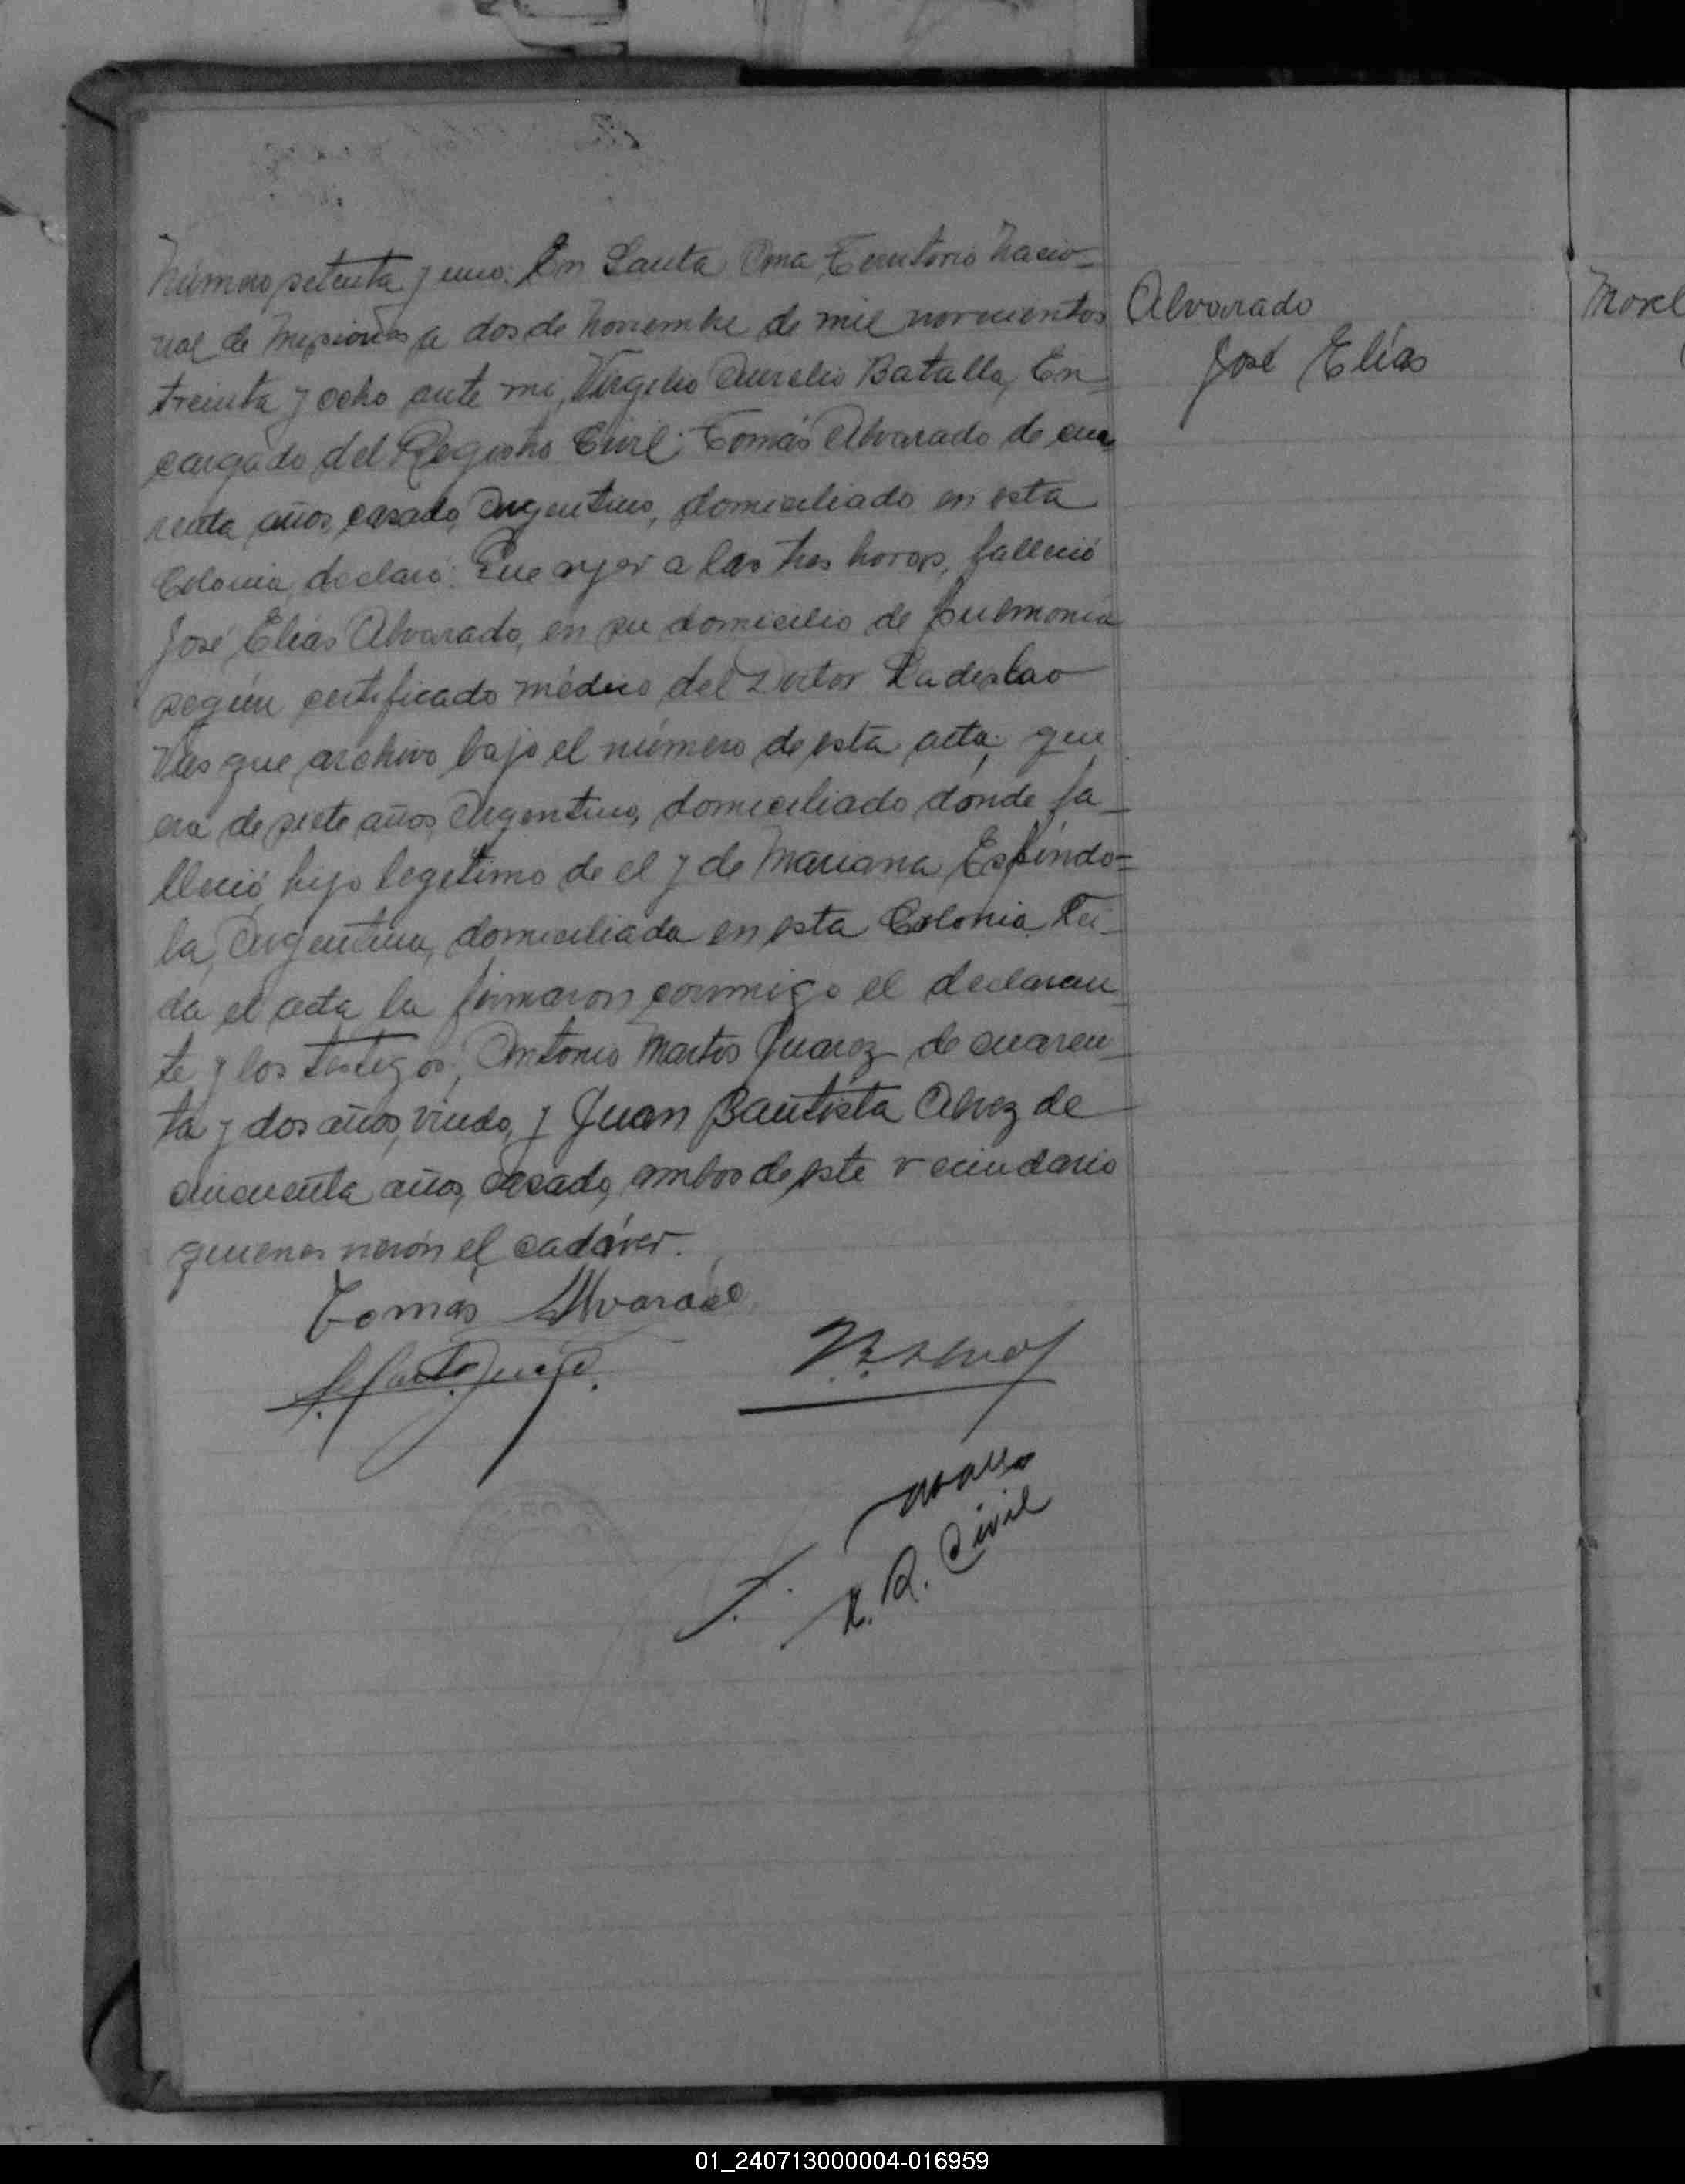 Número setenta y uno: En Santa Ana Territorio Nacio-
nal de Misiones a dos de Noviembre de mil novecientos
treinta y ocho ante mi, Virgilio Aurelio Batalla, En-
cargado del Registro Civil: Tomás Alvarado de cua
renta años, casado, Argentino, domiciliado en esta
Colonia, declaró: Que ayer a las tres horas, falleció
José Elías Alvarado, en su domicilio de pulmonía
según certificado médico del Doctor Ladeslao
que archivo bajo el número de esta acta; que
era de siete años, Argentino, domiciliado dónde fa-
lleció, hijo legitimo de el y de Mariana Espíndo-
la, Argentina, domiciliada en esta Colonia. Leí-
da el acta la firmaron conmigo el declaran-
te y los testigos; Antonio Martos Juarez de cuaren-
ta y dos años, viudo, y Juan Bautista Alvez de
cincuenta años, casado, ambos de este vecindario
quienes vierón el cadáver.
Tomás Alvarado
E. R. Civil
Alvarado
José Elías